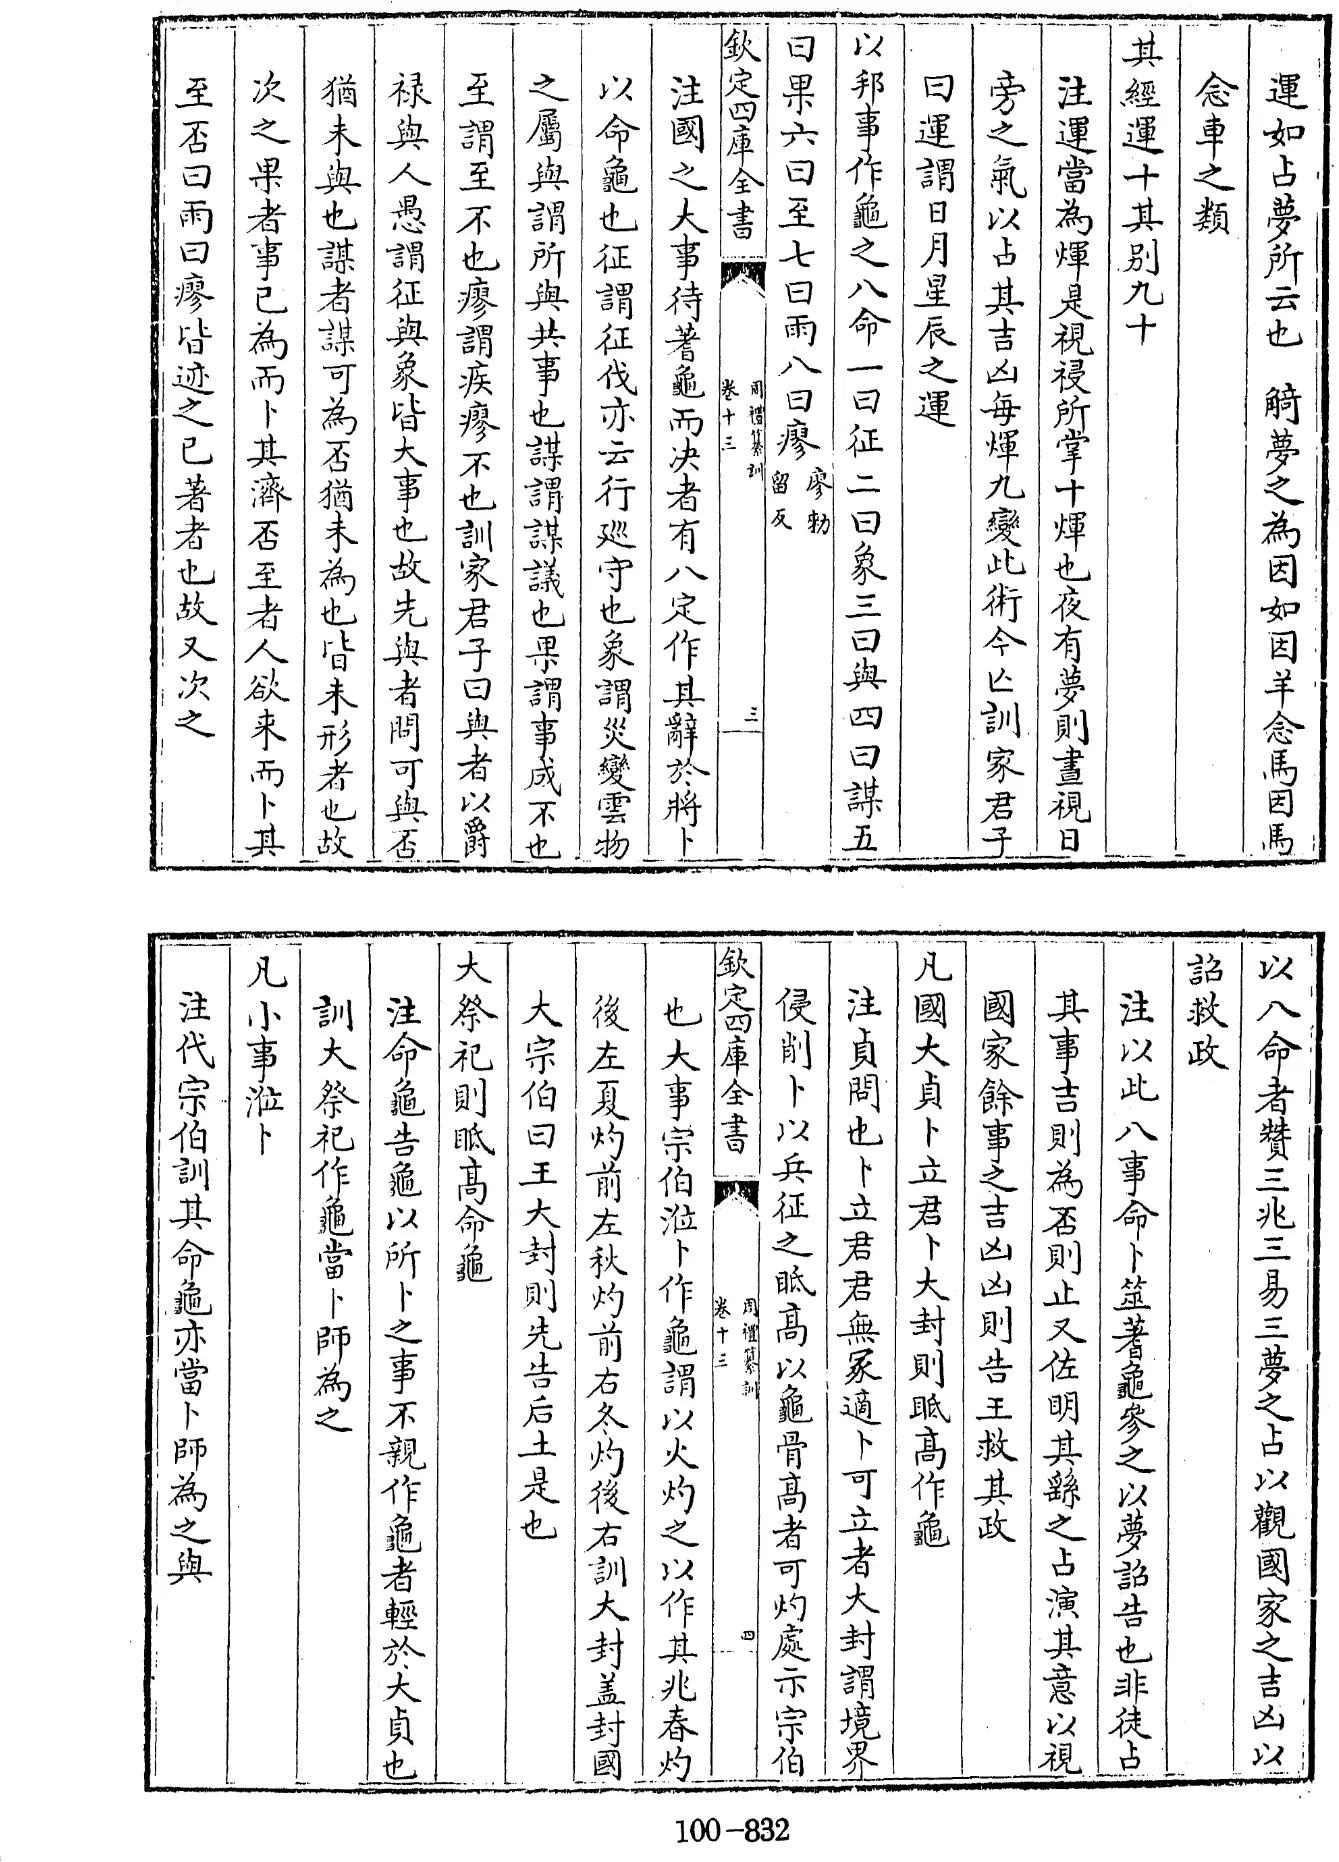 運如占夢所云也　觭夢之為因如因羊念馬因馬
念車之類
其經運十其别九十
注運當為煇是視祲所掌十煇也夜有夢則晝視日
旁之氣以占其吉凶每煇九變此術今亾訓家君子
曰運謂日月星辰之運
以邦事作龜之八命一曰征二曰象三曰與四曰謀五
曰果六曰至七曰雨八曰瘳廖勑留反
欽定四庫全書
周禮纂訓
卷十三
三
注國之大事待蓍龜而决者有八定作其辭於將卜
以命龜也征謂征伐亦云行廵守也象謂災變雲物
之屬與謂所與共事也謀謂謀議也果謂事成不也
至謂至不也瘳謂疾瘳不也訓家君子曰與者以爵
禄與人愚謂征與象皆大事也故先與者問可與否
猶未與也謀者謀可為否猶未為也皆未形者也故
次之果者事已為而卜其濟否至者人欲来而卜其
至否曰雨曰瘳皆迹之已著者也故又次之
以八命者贊三兆三易三夢之占以觀國家之吉凶以
詔救政
注以此八事命卜筮蓍龜參之以夢詔告也非徒占
其事吉則為否則止又佐明其繇之占演其意以視
國家餘事之吉凶凶則告王救其政
凡國大貞卜立君卜大封則眡高作龜
注貞問也卜立君君無冢適卜可立者大封謂境界
侵削卜以兵征之眡高以龜骨高者可灼處示宗伯
欽定四庫全書
周禮纂訓
卷十三
四
也大事宗伯涖卜作龜謂以火灼之以作其兆春灼
後左夏灼前左秋灼前右冬灼後右訓大封盖封國
大宗伯曰王大封則先告后土是也
大祭祀則眡高命龜
注命龜告龜以所卜之事不親作龜者輕於大貞也
訓大祭祀作龜當卜師為之
凡小事涖卜
注代宗伯訓其命龜亦當卜師為之與
100-832